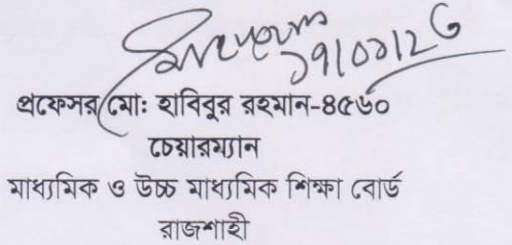 ১৭/০১/২৩
প্রফেসর মো: হাবিবুর রহমান-৪৫৬০
চেয়ারম্যান
মাধ্যমিক ও উচ্চ মাধ্যমিক শিক্ষা বোর্ড
রাজশাহী